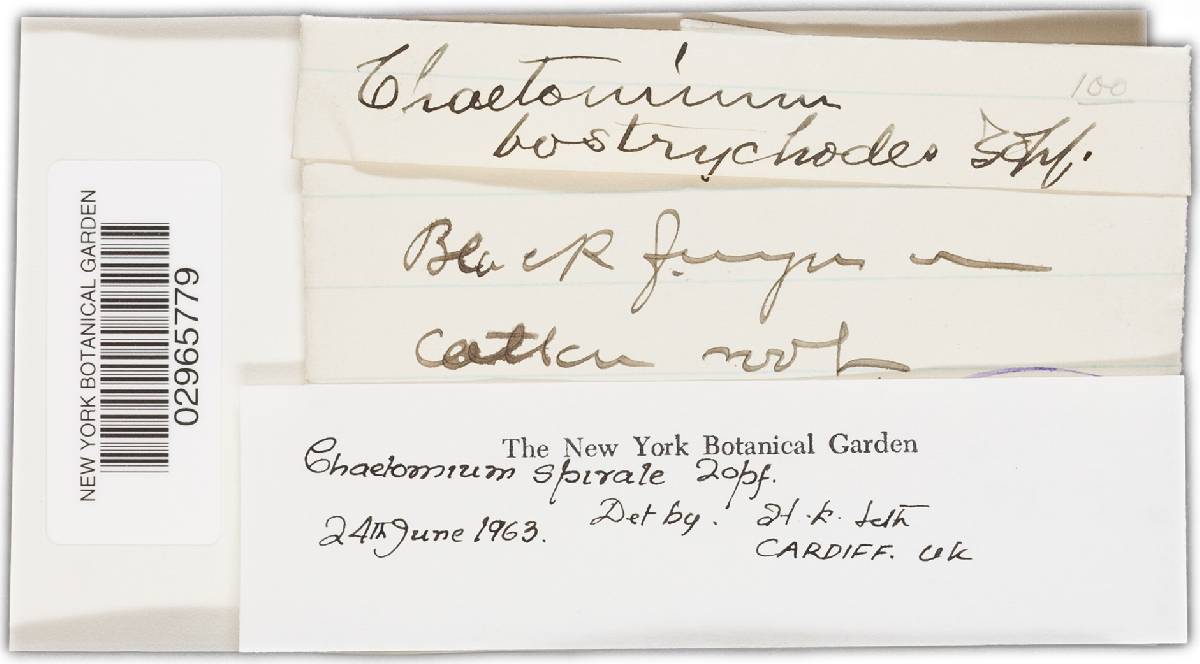 NEW YORK BOTANICAL GARDEN
02965779
100
Chaetomium
bostrychodes Zopf.
Black fungus on
The New York Botanical Garden
Chaetomium spirale Zopf.
24th June 1963. Det by. H.K. Seth
CARDIFF. UK